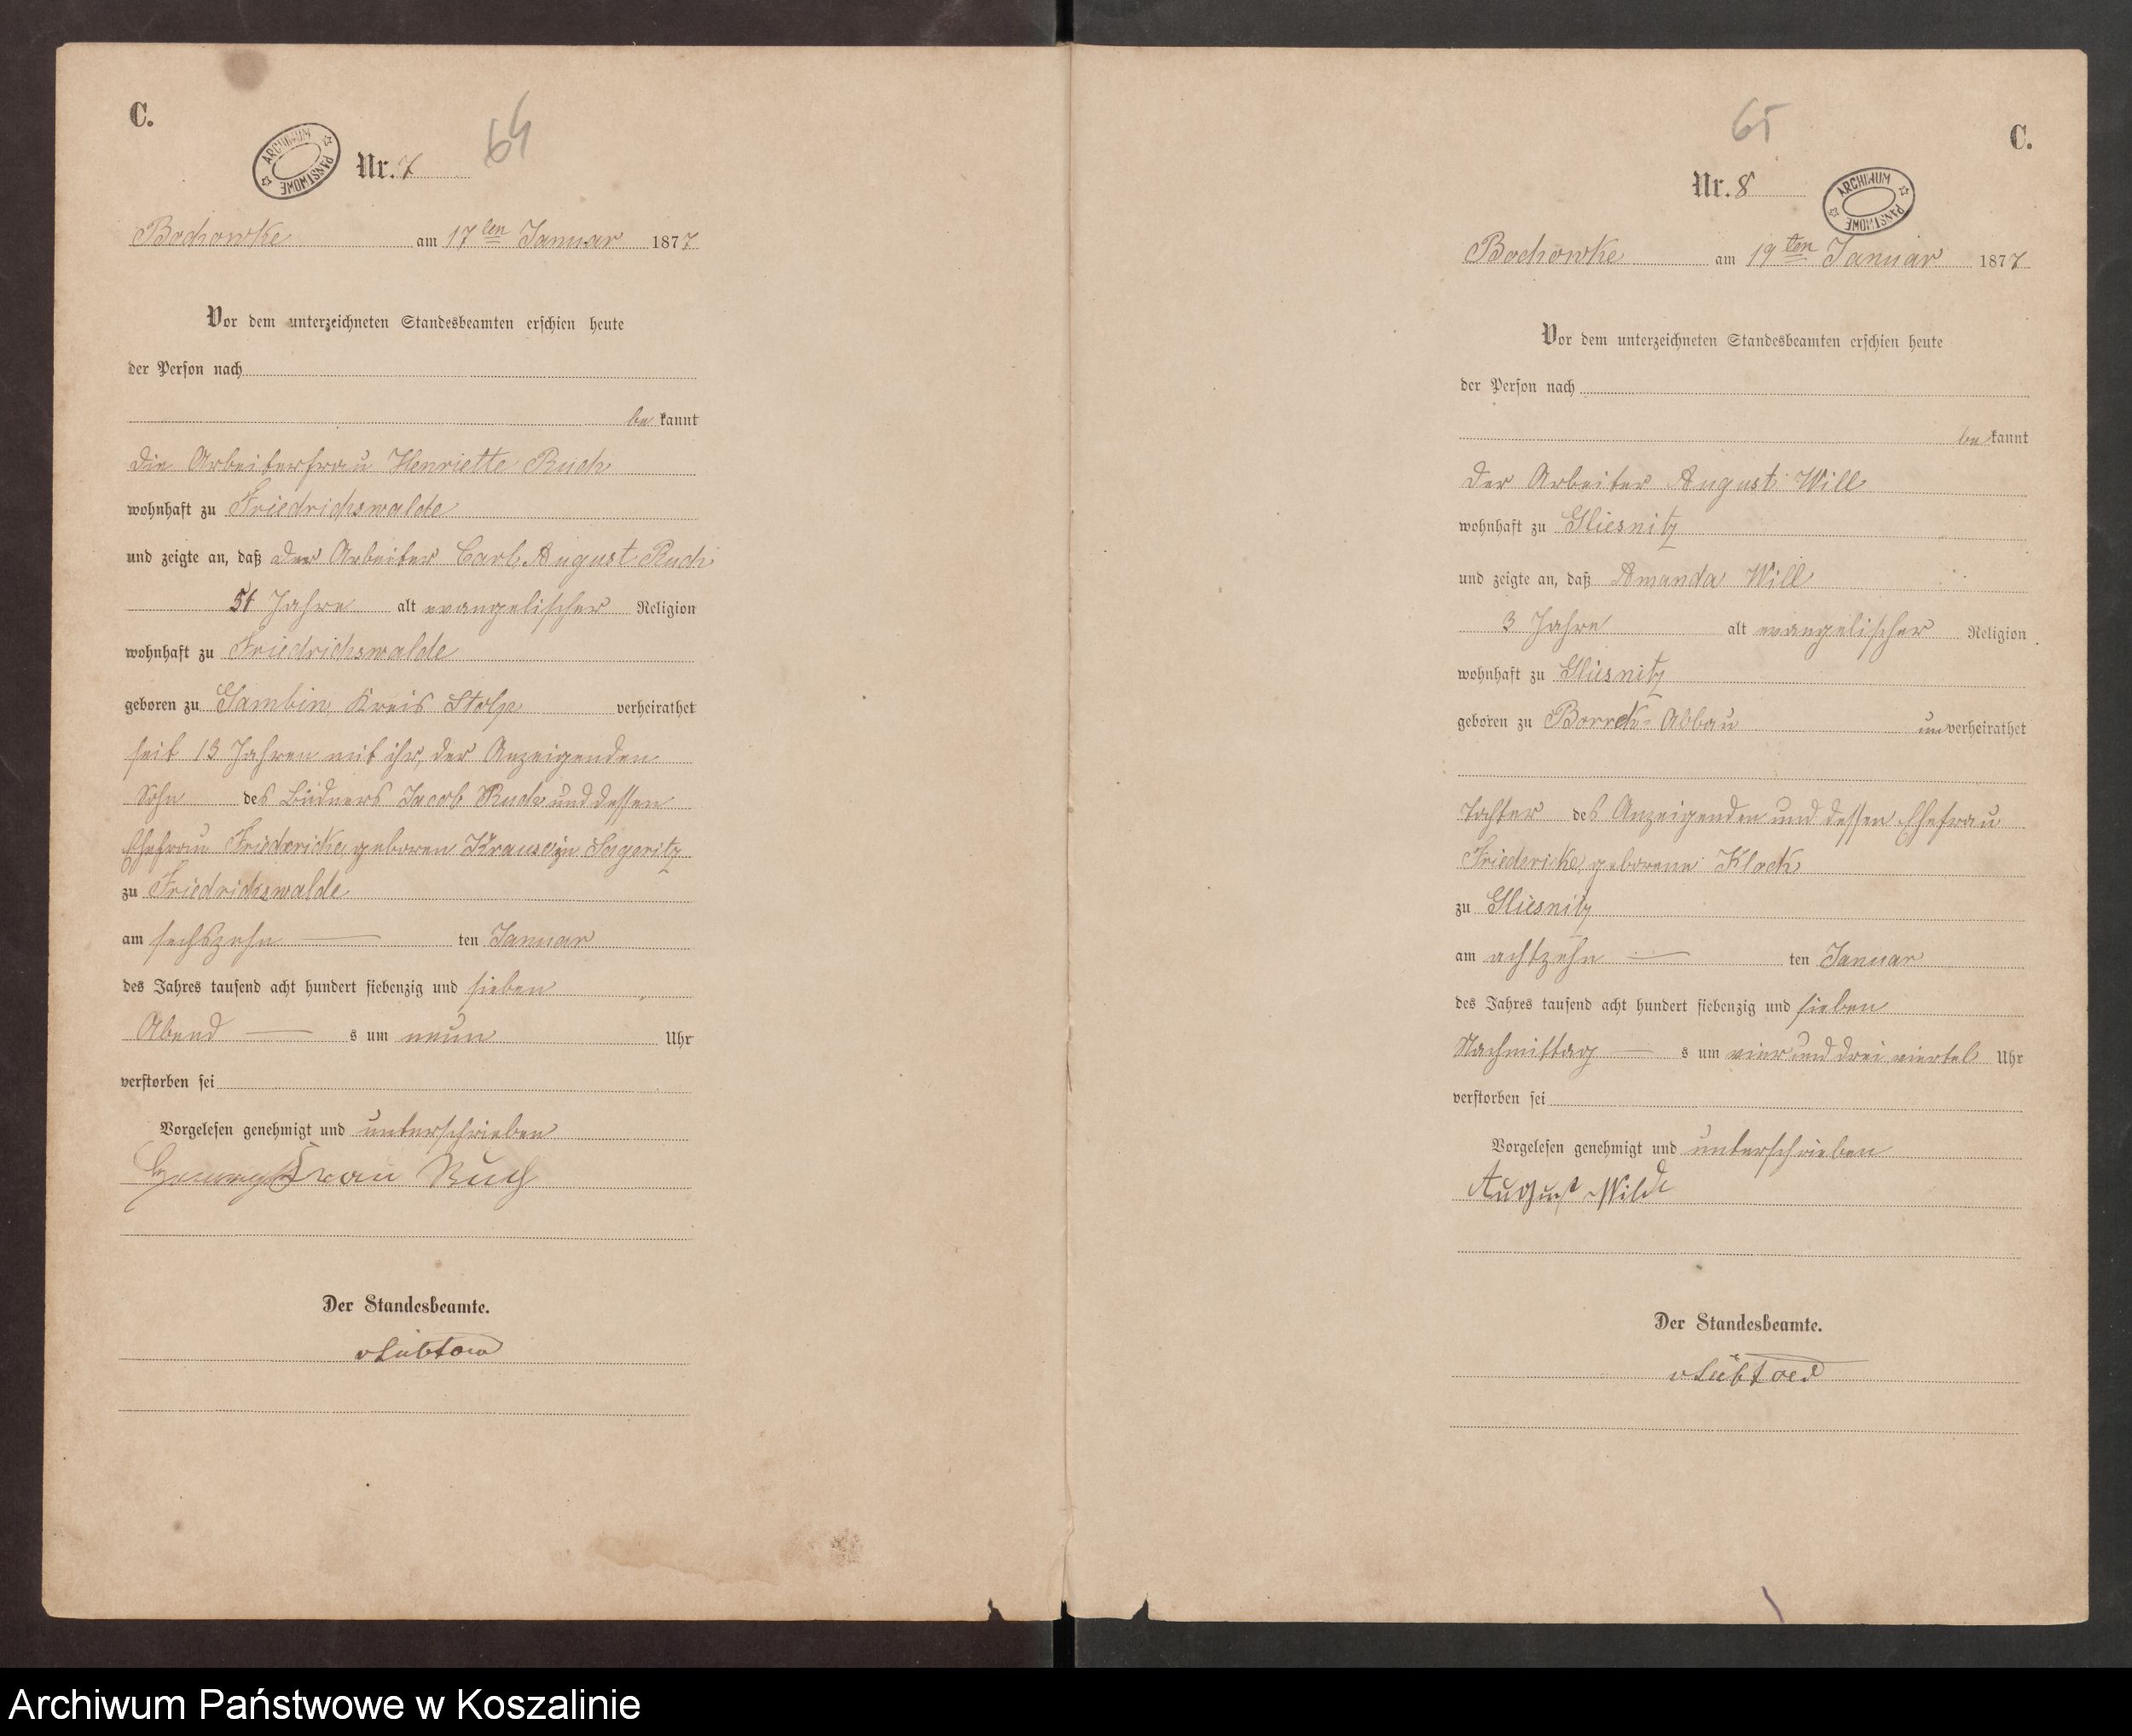 C.
ARCHIWUM PAŃSTWOWE
64
Nr. 7
Bochowke am 17ten Januar 1877
Vor dem unterzeichneten Standesbeamten erschien heute
der Person nach
be kannt
die Arbeiterfrau Henriette Ruch
wohnhaft zu Friedrichswalde
und zeigte an, daß der Arbeiter Carl August Ruch
51 Jahre alt evangelischer Religion
wohnhaft zu Friedrichswalde
geboren zu Gambin, Kreis Stolp verheirathet
seit 13 Jahren mit ihr, der Anzeigenden
Sohn des Büdners Jacob Ruch und dessen
Ehefrau Friedericke, geboren Krause zu Sageritz
zu Friedrichswalde
am sechszehn ten Januar
des Jahres tausend acht hundert siebenzig und sieben
Abend s um neun Uhr
verstorben sei
Vorgelesen genehmigt und unterschrieben
Frau Ruch
Der Standesbeamte.
vLübtow
65
C.
Nr. 8
ARCHIWUM PAŃSTWOWE
Bochowke am 19ten Januar 1877
Vor dem unterzeichneten Standesbeamten erschien heute
der Person nach
be kannt
der Arbeiter August Will
wohnhaft zu Gliesnitz
und zeigte an, daß Amanda Will
3 Jahre alt evangelischer Religion
wohnhaft zu Gliesnitz
geboren zu Borrek-Abbau un verheirathet
Tochter des Anzeigenden und dessen Ehefrau
Friedericke, geborene Klock
zu Gliesnitz
am achtzehn ten Januar
des Jahres tausend acht hundert siebenzig und sieben
Nachmittag s um vier und drei viertel Uhr
verstorben sei
Vorgelesen genehmigt und unterschrieben
August Wild
Der Standesbeamte.
vLübtow
Archiwum Państwowe w Koszalinie